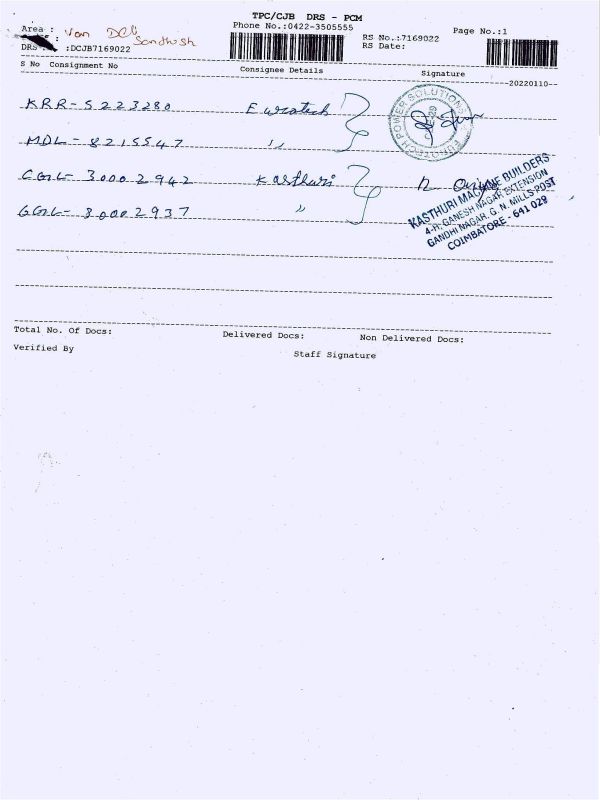 TPC/CJB DRS - PCM
Phone No.:0422-3505555
Area : Van Del
Santhosh
RS No.:7169022
RS Date:
Page No.:1
DRS : :DCJB7169022
S No Consignment No Consignee Details Signature
20220110
KRR-5223280 Eurotech
MDL-8215547 "
CGL-30002942 Kasthuri
GGL-30002937 "
EUROTECH POWER SOLUTION
KASTHURI MACHINE BUILDERS
4-A, GANESH NAGAR EXTENSION
GANDHI NAGAR, G. N. MILLS POST
COIMBATORE - 641 029
Total No. Of Docs: Delivered Docs: Non Delivered Docs:
Verified By Staff Signature